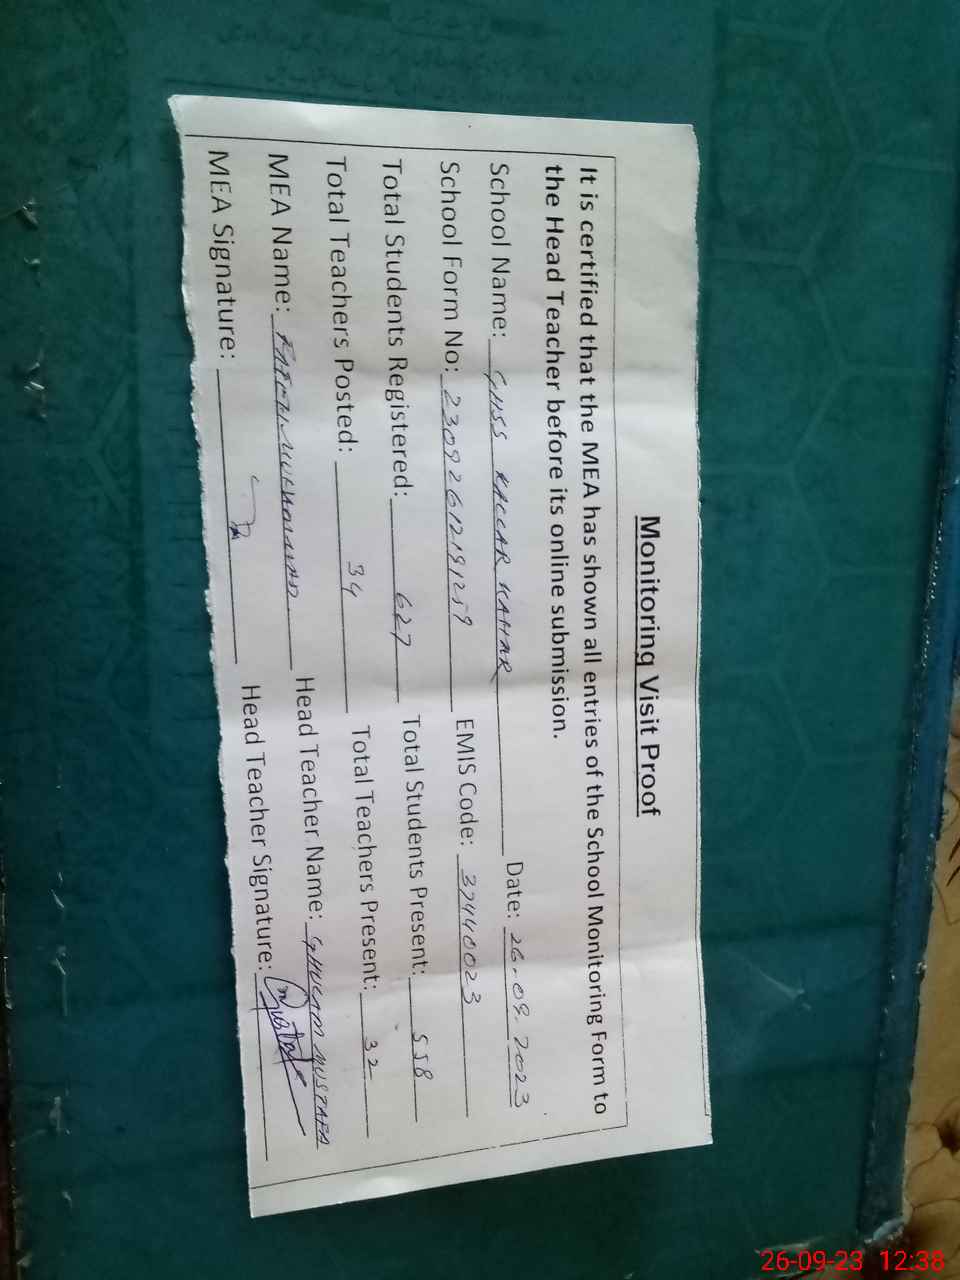 Monitoring Visit Proof
It is certified that the MEA has shown all entries of the School Monitoring Form to
the Head Teacher before its online submission.
School Name: GHSS KALLAR KAHAR Date: 26.09.2023
School Form No: 23092612191259 EMIS Code: 37440023
Total Students Registered: 627 Total Students Present: 558
Total Teachers Posted: 34 Total Teachers Present: 32
MEA Name: MUHAMMAD Head Teacher Name: GHULAM MUSTAFA
MEA Signature: Head Teacher Signature: Mustafa
26-09-23 12:38